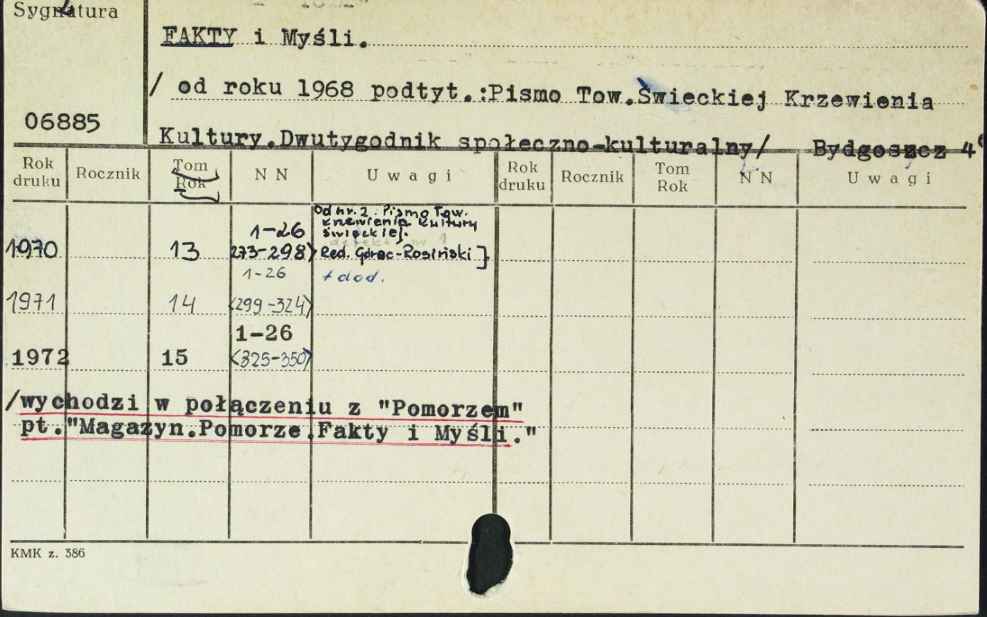 Sygnatura
FAKTY i Myśli.
/ od roku 1968 podtyt.:Pismo Tow.Świeckiej Krzewienia
06885
Kultury.Dwutygodnik społeczno-kulturalny/ Bydgoszcz 4°
Rok druku Rocznik Tom Rok NN Uwagi Rok druku Rocznik Tom Rok NN Uwagi
Od nr. 2. Pismo Tow.
krzewienia kultury
świeckiej.
1-26
1970 13 273-298) Red. Górec-Rosiński]
1-26 + dod.
1971 14 <299-324>
1-26
1972 15 <325-350>
/wychodzi w połączeniu z "Pomorzem"
pt."Magazyn.Pomorze.Fakty i Myśli."
KMK z. 386